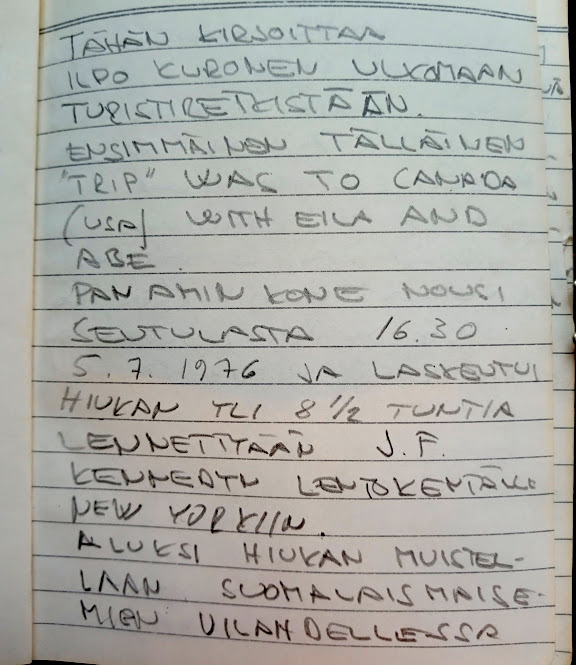 TÄHÄN KIRJOITTAA
ILPO KURONEN ULKOMAAN
TURISTIRETKISTÄÄN.
ENSIMMÄINEN TÄLLÄINEN
"TRIP" WAS TO CANADA
(USA) WITH EILA AND
ABE.
PAN AMIN KONE NOUSI
SEUTULASTA 16.30
5.7.1976 JA LASKEUTUI
HIUKAN YLI 8 1/2 TUNTIA
LENNETTYÄÄN J.F.
KENNEDYN LENTOKENTÄLLE
NEW YORKIIN.
ALUKSI HIUKAN MUISTEL-
LAAN SUOMALAISMAISE-
MIEN VILAHDELLESSA